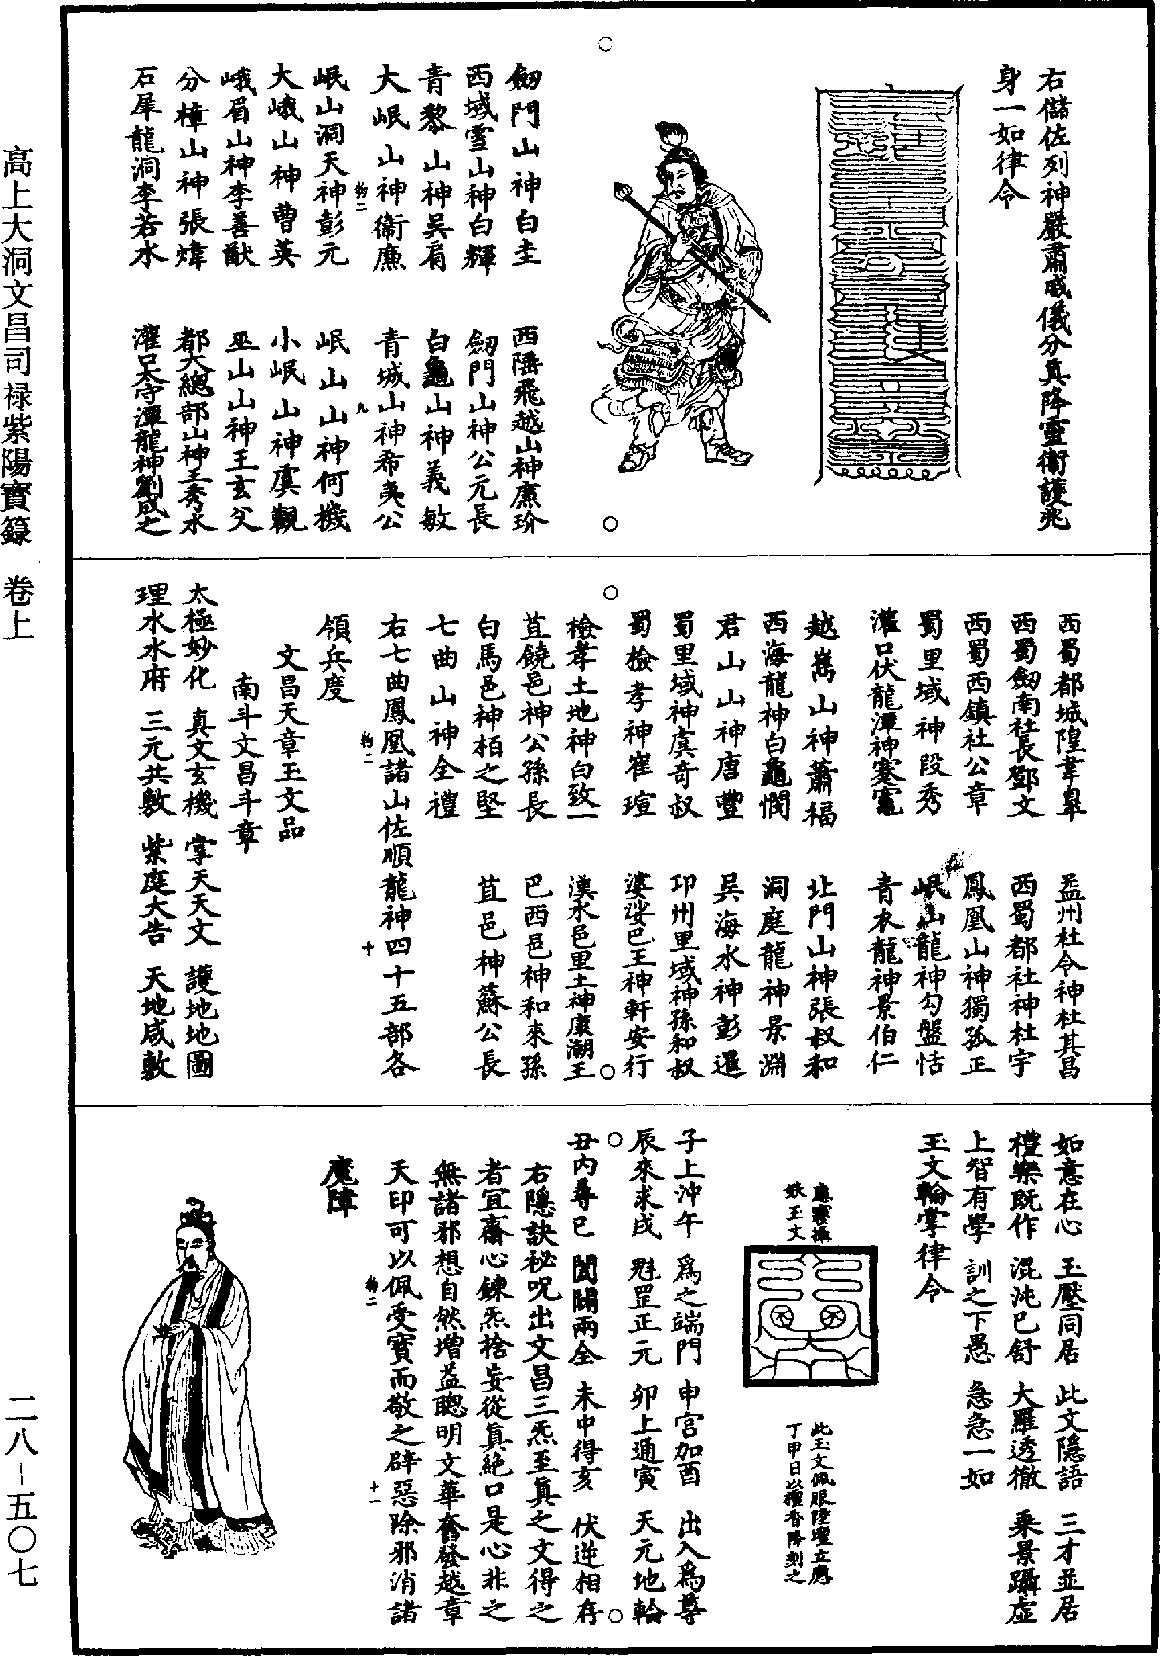 右儲佐列神嚴肅威儀分真降靈衛護兆
身一如律令
劒門山神白圭　西隱飛越山神羔玠
西域雪山神白輝　劒門山神公元長
青黎山神吳肩　白龜山神義敏
大岷山神衛廉　青城山神希夷公
岷山洞天神彭元　岷山山神何機
大峨山神曹英　小岷山神虞觀
峨眉山神李善猷　巫山山神王玄父
分樟山神張煒　都大總部山神王秀水
石犀龍洞李若水　灌口太守潭龍神劉成之
西蜀都城隍韋臯　益州社令神杜其昌
西蜀劒南社長鄧文　西蜀都社神杜宇
西蜀西鎮社公章　鳳凰山神獨孤正
蜀里域神段秀　岷山龍神勾盤恬
灌口伏龍潭神蹇䨻　青衣龍神景伯仁
越嶲山神蕭福　北門山神張叔和
西海龍神白龜憫　洞庭龍神景淵
君山山神唐豐　吳海水神彭暹
蜀里域神虞奇叔　卭州里域神孫和叔
蜀檢孝神崔瑄　婆娑巴王神軒安行
檢孝土地神白致一　漢水邑里土神廣潮王
苴鐃邑神公孫長　巴西邑神和來孫
白馬邑神栢之堅　苴邑神蘇公長
七曲山神全禮
右七曲鳳凰諸山佐順龍神四十五部各
領兵度
文昌天章玉文品
南斗文昌斗章
太極妙化　真文玄機　掌天天文　護地地圖
理水水府　三元共敷　紫庭大告　天地咸敷
如意在心　玉壓同居　此文隱語　三才並居
禮樂既作　混沌已舒　大羅透徹　乘景躡虛
上智有學　訓之下愚　急急一如
玉文輪掌律令
應靈攝
妖玉文
此玉文佩服陞壇立應
丁甲日以檀香降刻之
子上沖午　為之端門　申宮加酉　出入為尊
辰來求戌　魁罡正元　卯上通寅　天元地輪
丑內尋巳　闔闢兩全　未中得亥　伏逆相存
右隱訣秘呪出文昌三炁至真之文得之
者宜齋心鍊炁捨妄從真絕口是心非之
無諸邪想自然增益聰明文華奮發越章
天印可以佩受寶而敬之辟惡除邪消諸
魔障
高上大洞文昌司禄紫陽寶籙　卷上
二八－五〇七